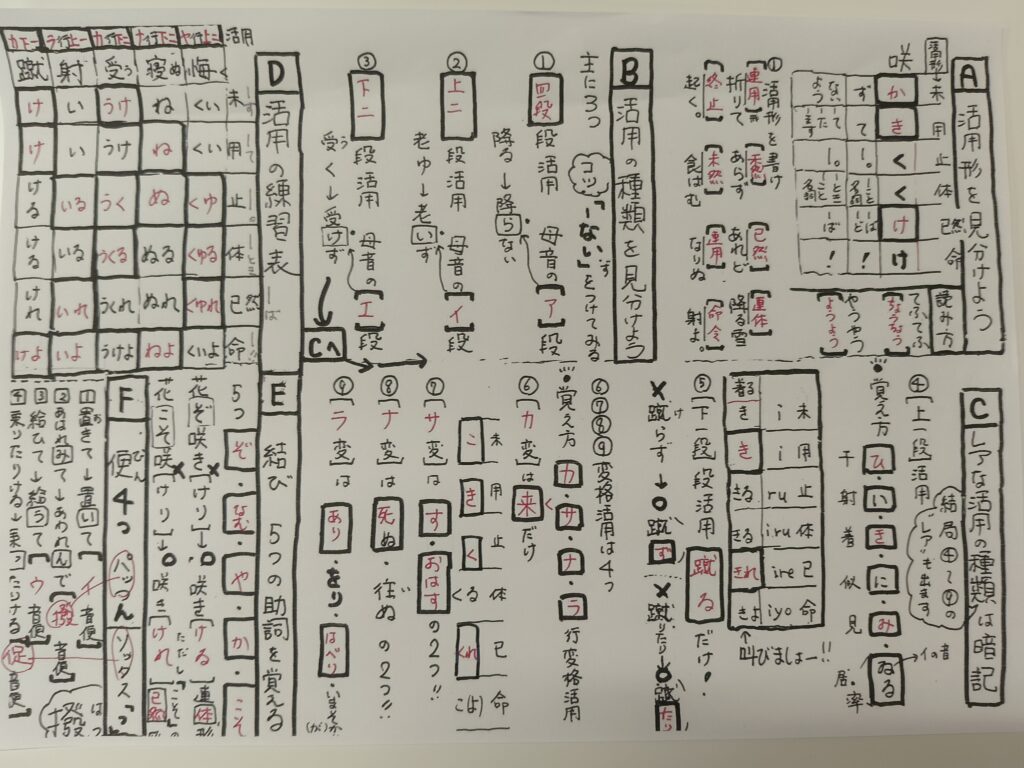 A 活用形を見分けよう
活用形→
未 用 止 体 已然 命
咲
か き く く け け
ず て 。 ー とき ー ども ！
ない
ようつ
読み方
てふてふ
【ちょうちょう】
やうやう
【ようよう】
① 活用形を書け
【連用】 折りて
【未然】 あらず
【已然】 あれど
【連体】 降る雪
【終止】 起く。
【未然】 食はむ
【連用】 なりぬ
【命令】 射よ。
B 活用の種類を見分けよう
主に3つ
コツ 「ーない」をつけてみる
ず
① 四段 段活用 母音の【ア】段
降る→降らない
② 上二 段活用 母音の【イ】段
老ゆ→老いず
③ 下二 段活用 母音の【エ】段
受く→受けず
Cへ
D 活用の練習表
活用 未 用 止 体 已然 命
ヤ行上二 悔く くい くい くゆ くゆる くゆれ くいよ
ナ行下二 寝ぬ ね ね ぬ ぬる ぬれ ねよ
カ行下二 受う うけ うけ うく うくる うくれ うけよ
ラ行上一 射 い い いる いる いれ いよ
カ下一 蹴 け け ける ける けれ けよ
C レアな活用の種類は暗記
結局④〜⑨の「レア」も出ます
④ 上一 段活用
覚え方 ひ・い・き・に・み・ゐる
イの音
干 射 着 似 見 居・率
着る
未 用 止 体 已 命
i i ru iru ire iyo
き き きる きる きれ きよ
叫びましょー!!
⑤ 下一段 段活用 蹴る だけ！
×蹴らず→○蹴ず
×蹴りたり→○蹴たり
⑥⑦⑧⑨ 変格活用は4つ
覚え方 カ・サ・ナ・ラ 行変格活用
⑥ 【カ変】は 来 だけ
く
未 用 止 体 已 命
こ き く くる くれ こ(よ)
⑦ 【サ変】は す・おはす の2つ!!
⑧ 【ナ変】は 死ぬ・往ぬ の2つ!!
⑨ 【ラ変】は あり・をり・はべり・いまそか
(がり)
E 結び 5つの助詞を覚える
5つ ぞ・なむ・や・か・こそ
花ぞ咲き【けり】→○咲き【ける】 連体形
ただし「こそ」の
花こそ咲き【けり】→○咲き【けれ】 已然
F 音便 4つ パッつん ソックス「っ」
びん
① 置きて→置いて イ音便
② あはれみて→あわれんで 撥音便
③ 給ひて→給うて ウ音便
④ 乗りたりける→乗つたりける 促音便
はつ
撥